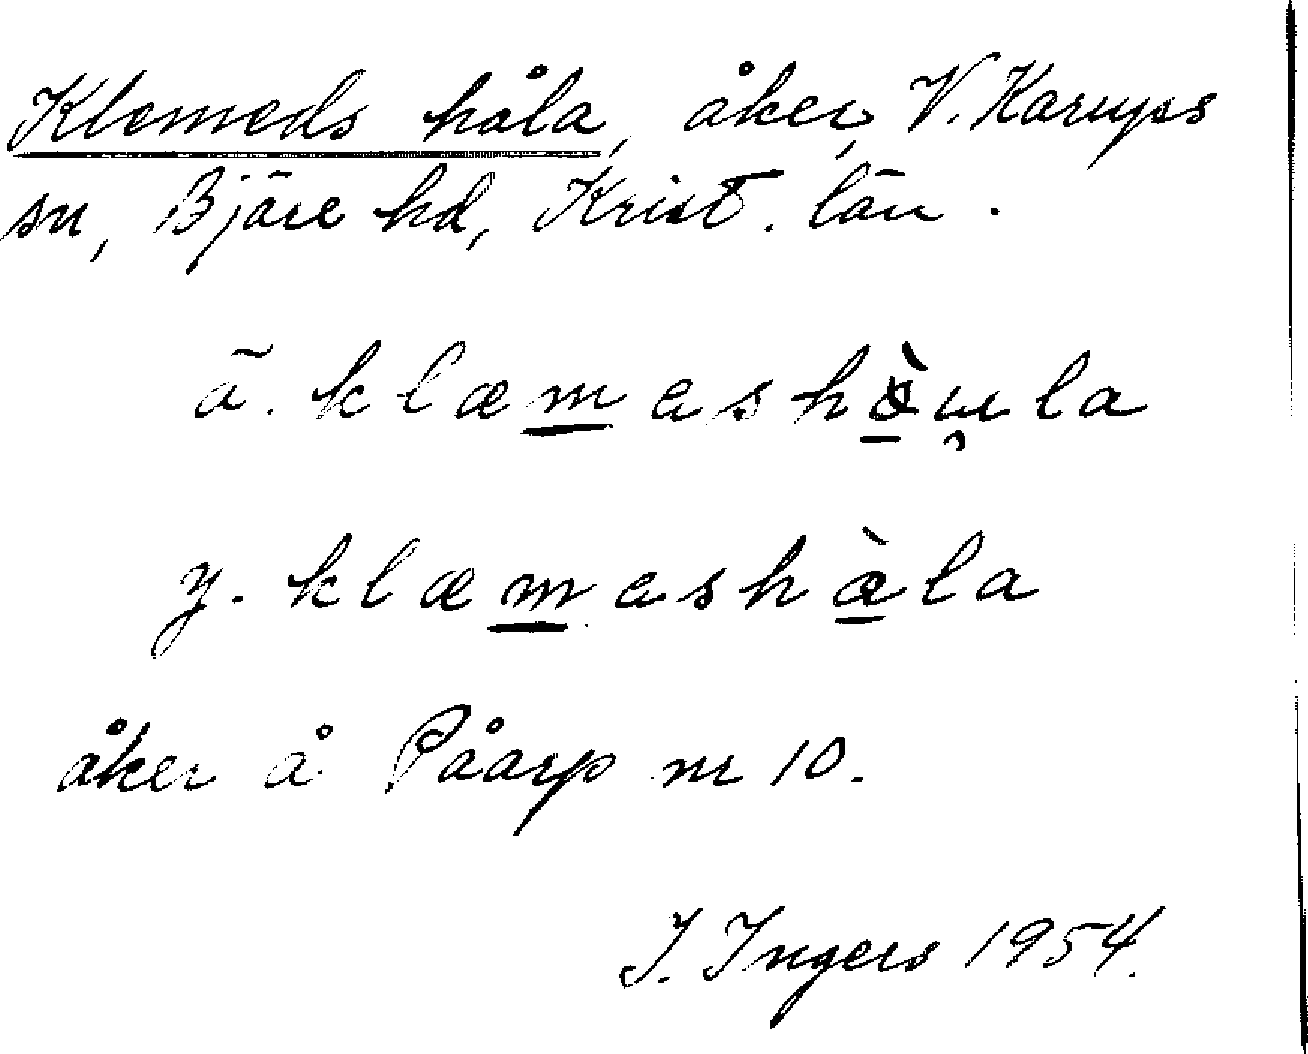 Klemeds håla, åker, V. Karups
sn, Bjäre hd, Krist. län.
ä. klæmashö̀u̯la
y. klæmashàla
åker å Påarp nr 10.
I. Ingers 1954.